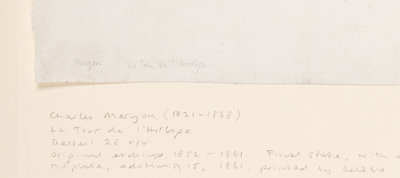 Meryon La Tour de l'Horloge
Charles Meryon (1821-1868)
La Tour de l'Horloge
Delteil 28 x/x
Original etching, 1852 - 1861. Final state, with
edition 15, 1861, printed by Delâtre